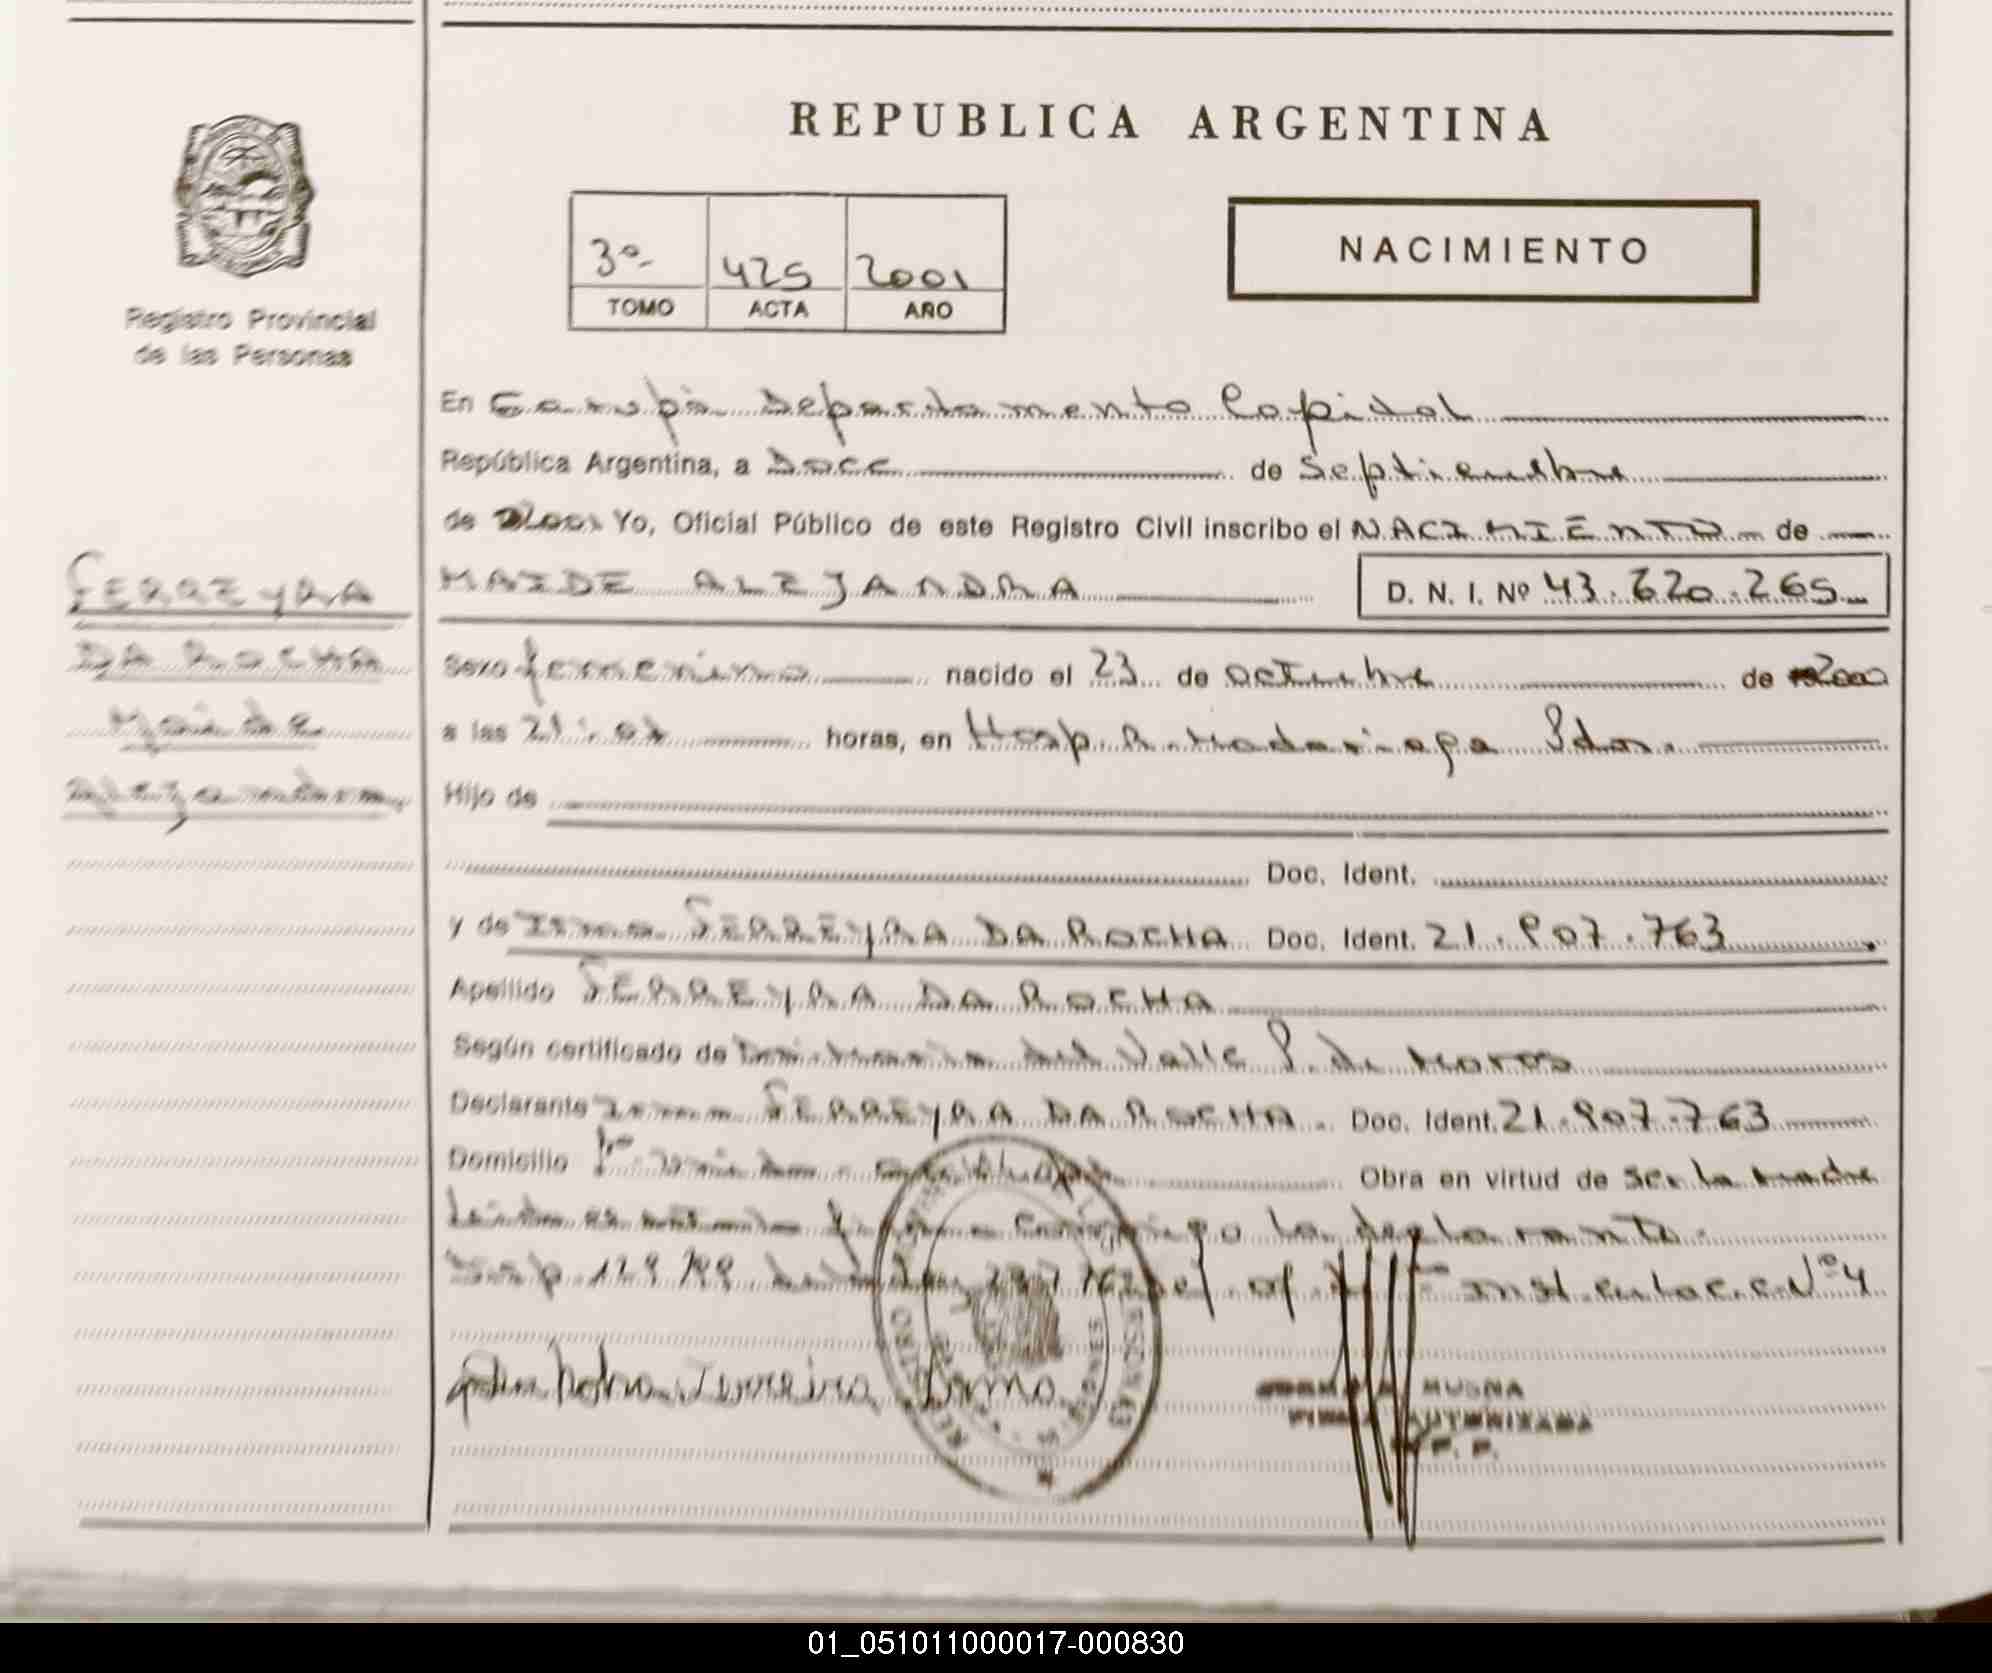 REPUBLICA ARGENTINA
3º
425
2001
TOMO
ACTA
AÑO
NACIMIENTO
Registro Provincial
de las Personas
En Garupá Departamento Capital
República Argentina, a Doce de Septiembre
de 2001 Yo, Oficial Público de este Registro Civil inscribo el NACIMIENTO de
MAIDE ALEJANDRA
D. N. I. Nº 43.620.265
FERREYRA
DA ROCHA
Maide
Alejandra
Sexo femenino nacido el 23 de octubre de 2000
a las 21: horas, en Hosp. R. Madariaga Pdas.
Hijo de
Doc. Ident.
y de Irma FERREYRA DA ROCHA Doc. Ident. 21.907.763
Apellido FERREYRA DA ROCHA
Según certificado de María del Valle P. de
Declarante Irma FERREYRA DA ROCHA. Doc. Ident. 21.907.763
Domicilio Obra en virtud de ser la madre
Leída el acta la firma conmigo la declarante.
Nº 4
Da Rocha Ferreira Irma
REGISTRO
MISIONES
MUSNA
FIRMA AUTORIZADA
R. P. P.
01_051011000017-000830